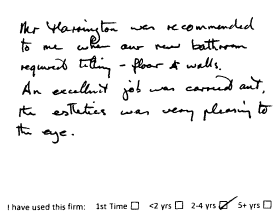 Mr Harrington was recommended
to me when our new bathroom
required tiling - floor & walls.
An excellent job was carried out,
the esthetics was very pleasing to
the eye.
I have used this firm: 1st Time ☐ <2 yrs ☐ 2-4 yrs ☑ 5+ yrs ☐